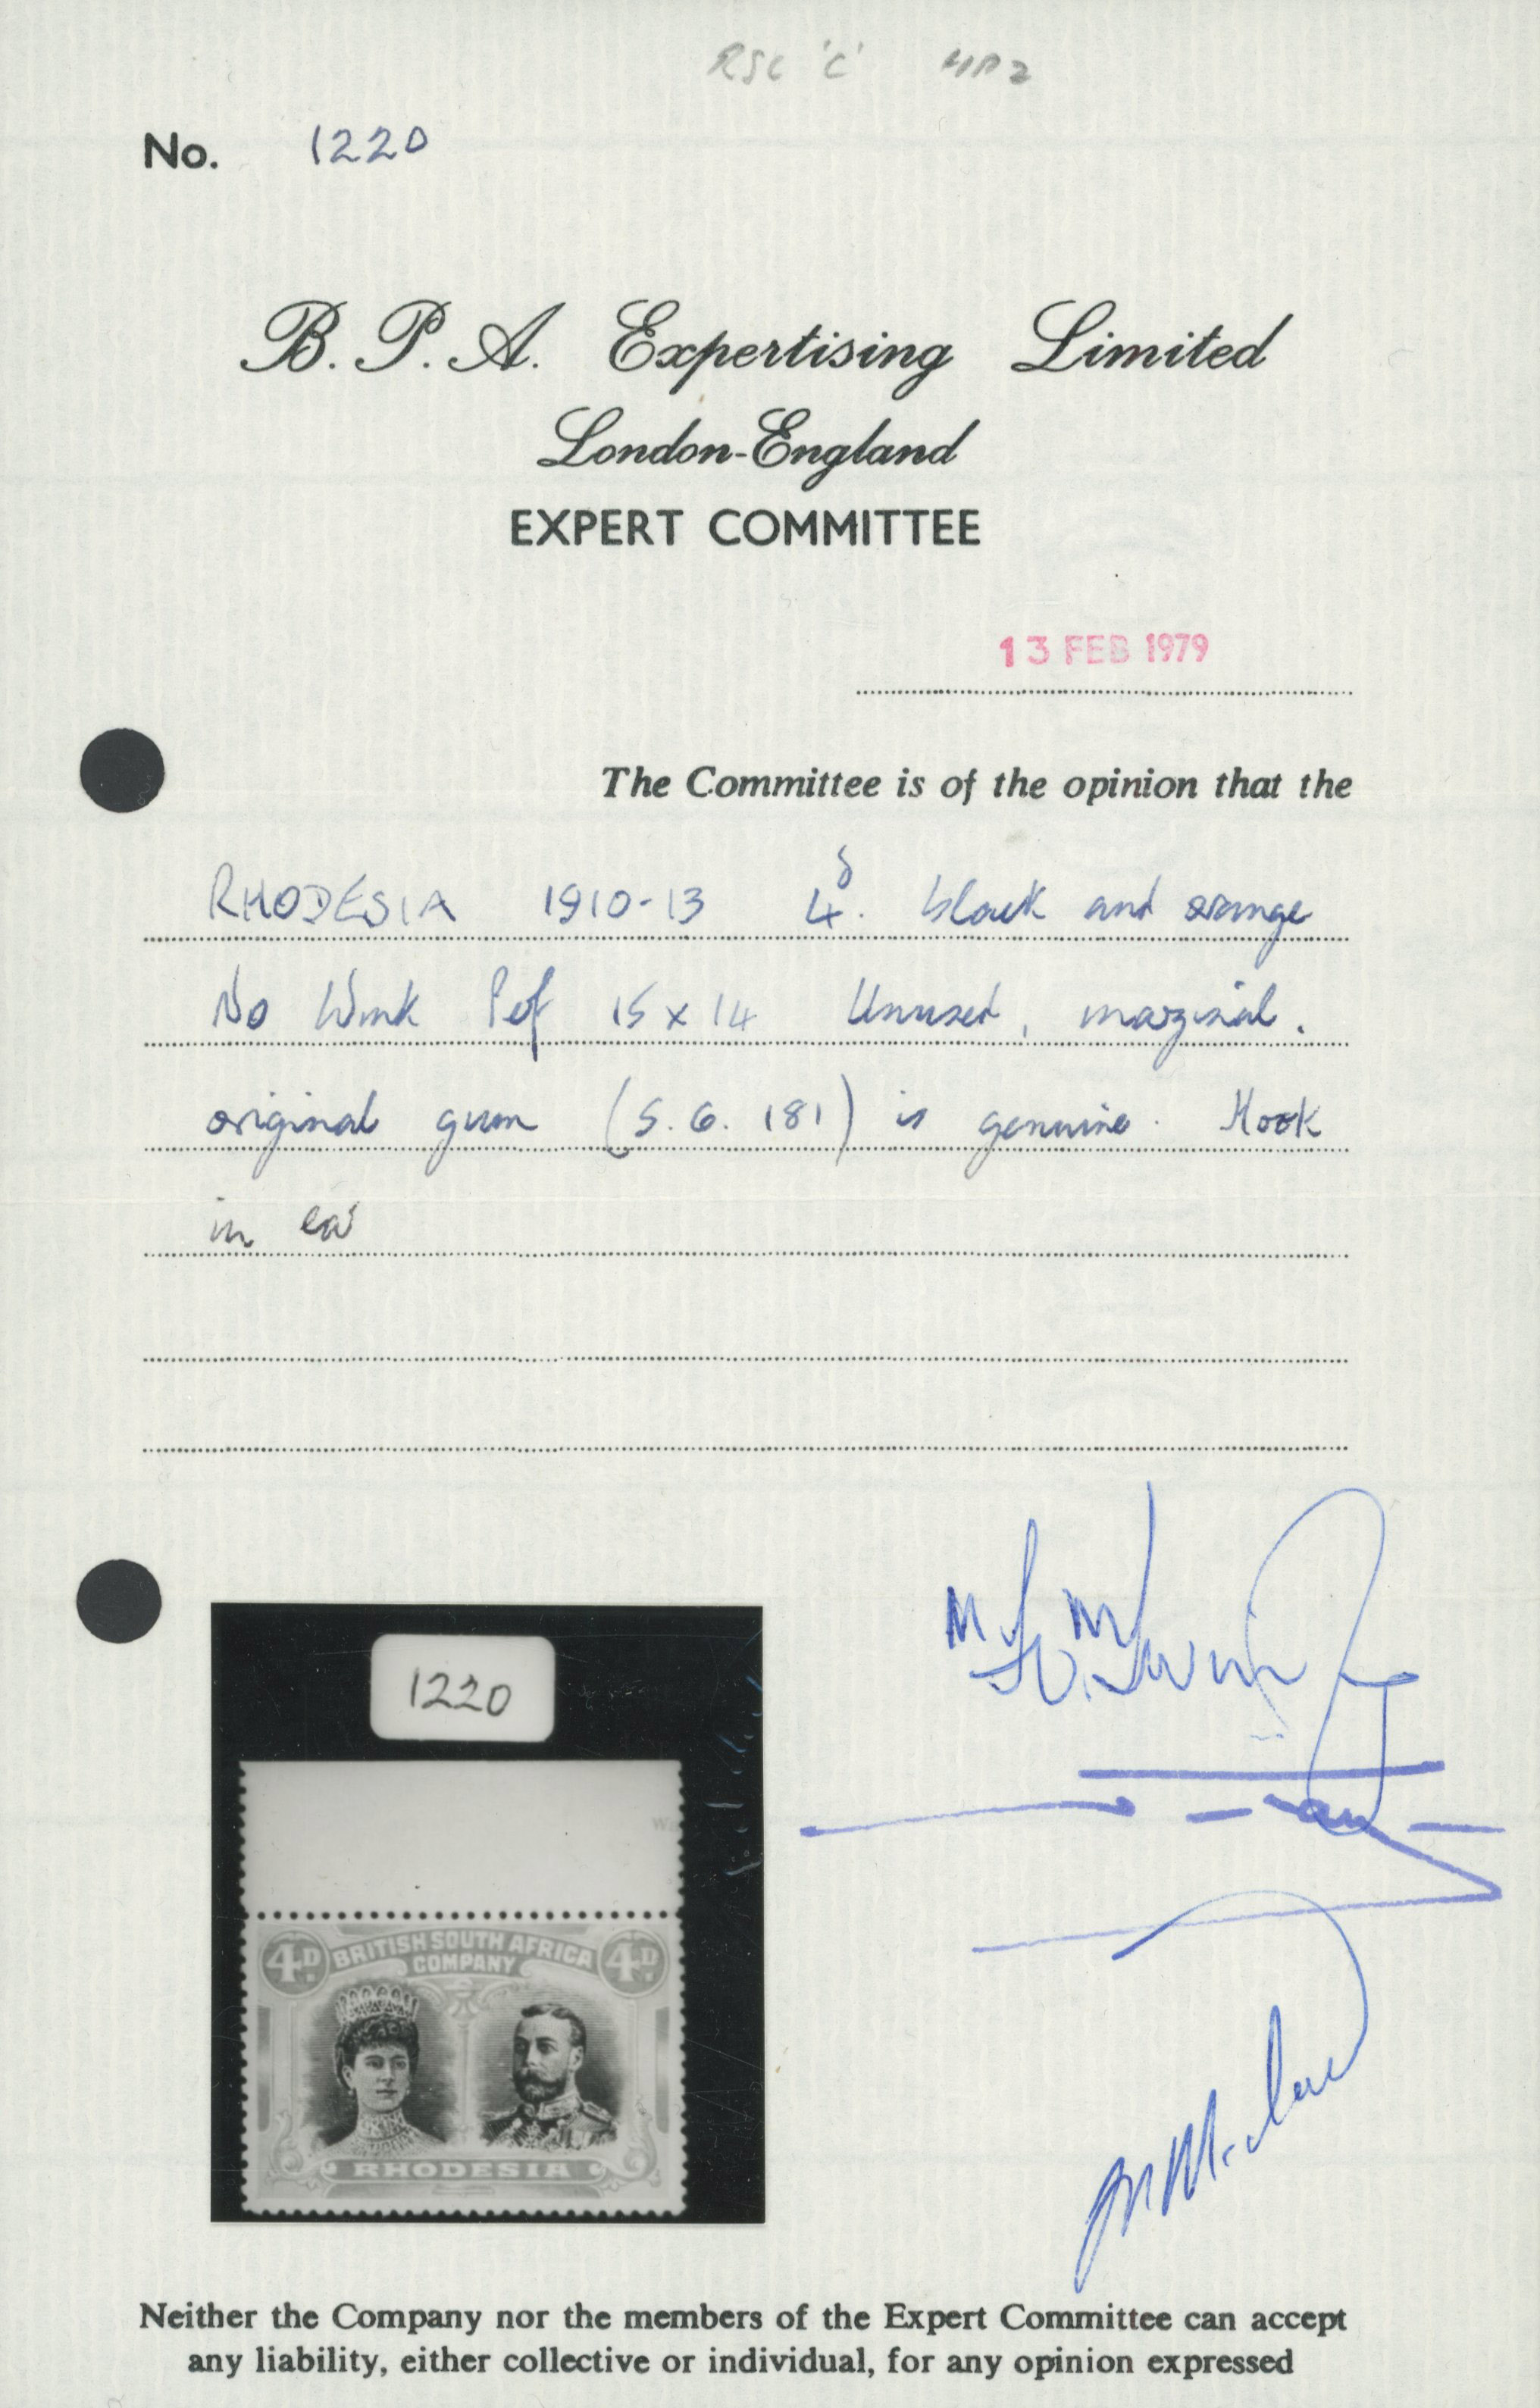 RSC 'C' 4D2
No. 1220
B. P. A. Expertising Limited
London-England
EXPERT COMMITTEE
13 FEB 1979
The Committee is of the opinion that the
RHODESIA 1910-13 4d. black and orange
No Wmk Pef 15 x 14 Unused, marginal.
original gum (S.G. 181) is genuine. Hook
in ear
1220
4D. BRITISH SOUTH AFRICA COMPANY 4D.
RHODESIA
Neither the Company nor the members of the Expert Committee can accept
any liability, either collective or individual, for any opinion expressed